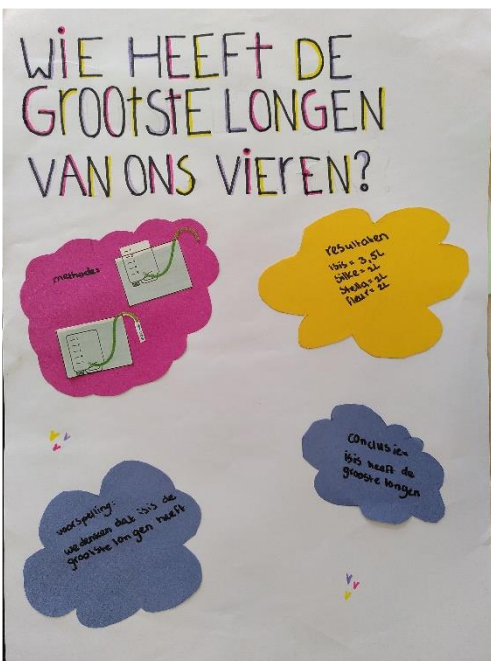 WiE HEEFt DE
GrOOtStE LONGEN
VAN ONS ViErEN?
methode:
resultaten
isis = 3,5L
Silke = 2L
Stella = 2L
Fleur = 2L
Conclusie=
isis heeft de
grooste longen
voorspelling:
we denken dat isis de
grootste longen heeft